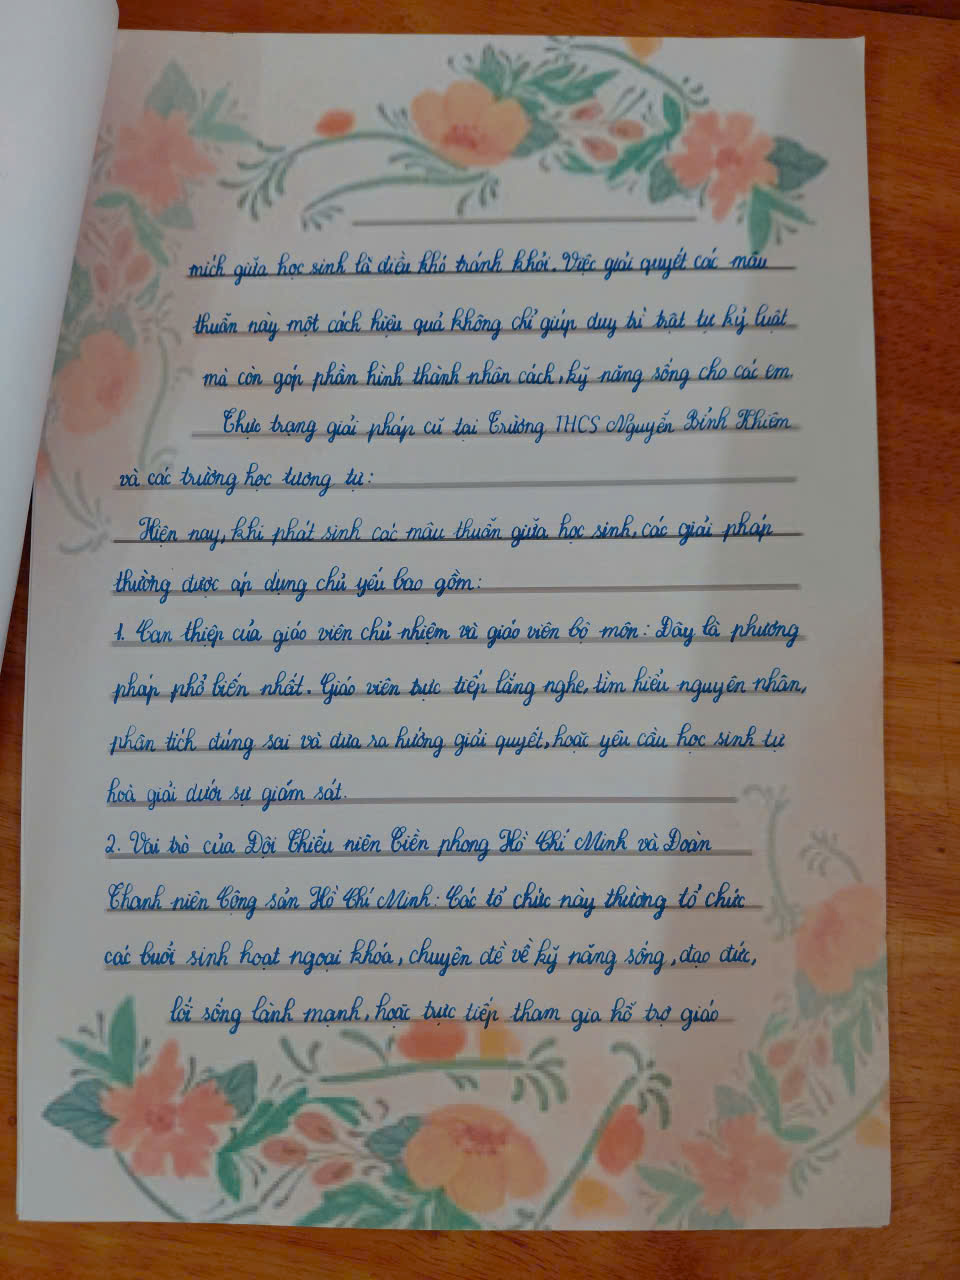 mích giữa học sinh là điều khó tránh khỏi. Việc giải quyết các mâu
thuẫn này một cách hiệu quả không chỉ giúp duy trì trật tự kỷ luật
mà còn góp phần hình thành nhân cách, kỹ năng sống cho các em.
Thực trạng giải pháp cũ tại Trường THCS Nguyễn Bỉnh Khiêm
và các trường học tương tự:
Hiện nay, khi phát sinh các mâu thuẫn giữa học sinh, các giải pháp
thường được áp dụng chủ yếu bao gồm:
1. Can thiệp của giáo viên chủ nhiệm và giáo viên bộ môn: Đây là phương
pháp phổ biến nhất. Giáo viên trực tiếp lắng nghe, tìm hiểu nguyên nhân,
phân tích đúng sai và đưa ra hướng giải quyết, hoặc yêu cầu học sinh tự
hoà giải dưới sự giám sát.
2. Vai trò của Đội Thiếu niên Tiền phong Hồ Chí Minh và Đoàn
Thanh niên Cộng sản Hồ Chí Minh: Các tổ chức này thường tổ chức
các buổi sinh hoạt ngoại khóa, chuyên đề về kỹ năng sống, đạo đức,
lối sống lành mạnh, hoặc trực tiếp tham gia hỗ trợ giáo